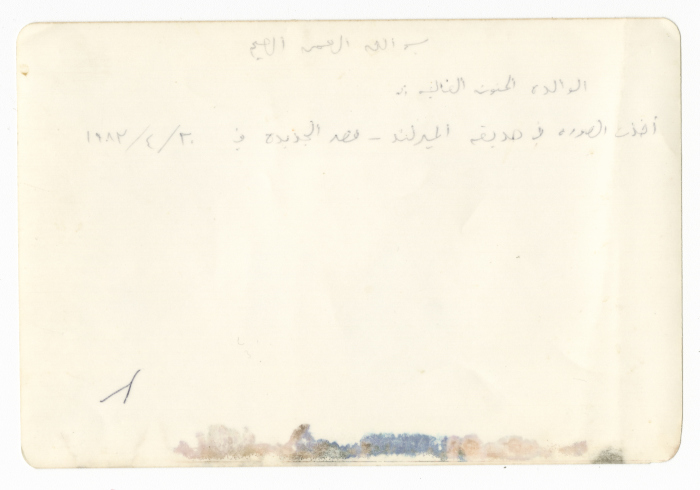 بسم الله الرحمن الرحيم
الوالده الحنون الغاليه :
أخذت الصوره في حديقه الميرلند - مصر الجديدة في ٣٠/٤/١٩٨٢